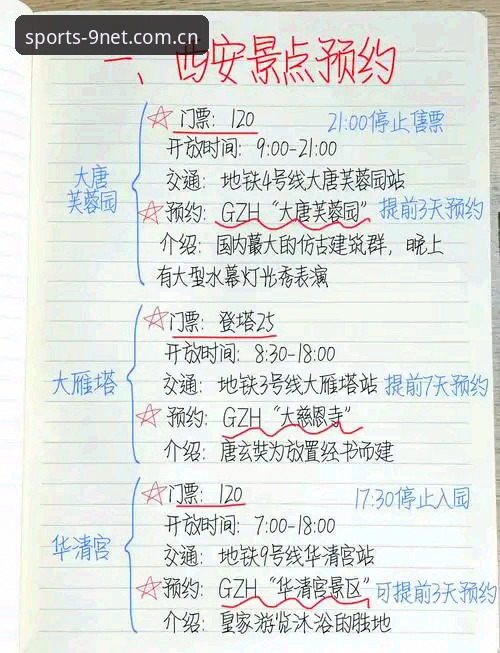 sports-9net.com.cn
一、西安景点预约
大唐芙蓉园
☆门票：120 21:00停止售票
开放时间：9:00-21:00
交通：地铁4号线大唐芙蓉园站
☆预约：GZH“大唐芙蓉园” 提前3天预约
介绍：国内最大的仿古建筑群，晚上
有大型水幕灯光秀表演
大雁塔
☆门票：登塔25
开放时间：8:30-18:00
交通：地铁3号线大雁塔站 提前7天预约
☆预约：GZH“大慈恩寺”
介绍：唐玄奘为放置经书而建
华清宫
☆门票：120 17:30停止入园
开放时间：7:00-18:00
交通：地铁9号线华清宫站
☆预约：GZH“华清宫景区” 可提前3天预约
介绍：皇家游览沐浴的胜地